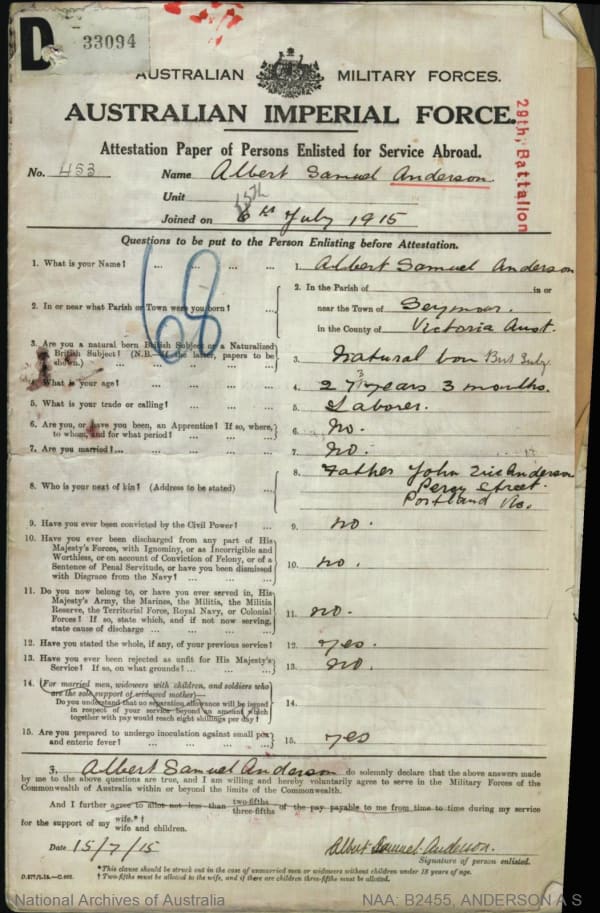 D 33094
AUSTRALIAN MILITARY FORCES.
AUSTRALIAN IMPERIAL FORCE.
29th, Battalion
Attestation Paper of Persons Enlisted for Service Abroad.
No. 453 Name Albert Samuel Anderson.
Unit
15th
Joined on 6th July 1915
Questions to be put to the Person Enlisting before Attestation.
1. What is your Name? ... ... ... ... 1. Albert Samuel Anderson
2. In or near what Parish or Town were you born? ... 2. In the Parish of in or
near the Town of Seymour.
in the County of Victoria Aust.
3. Are you a natural born British Subject or a Naturalized
British Subject? (N.B.—If the latter, papers to be
shown.) ... ... ... ... ... 3. Natural born Brit Subj.
4. What is your age? ... ... ... ... 4. 27 3 years 3 months.
5. What is your trade or calling? ... ... ... 5. Laborer.
6. Are you, or have you been, an Apprentice? If so, where,
to whom, and for what period? ... ... ... 6. No.
7. Are you married? ... ... ... ... 7. No.
8. Who is your next of kin? (Address to be stated) ... 8. Father John Anderson
Percy Street.
Portland Vic.
9. Have you ever been convicted by the Civil Power? ... 9. no.
10. Have you ever been discharged from any part of His
Majesty's Forces, with Ignominy, or as Incorrigible and
Worthless, or on account of Conviction of Felony, or of a
Sentence of Penal Servitude, or have you been dismissed
with Disgrace from the Navy? ... ... ... 10. no.
11. Do you now belong to, or have you ever served in, His
Majesty's Army, the Marines, the Militia, the Militia
Reserve, the Territorial Force, Royal Navy, or Colonial
Forces? If so, state which, and if not now serving,
state cause of discharge ... ... ... ... 11. no.
12. Have you stated the whole, if any, of your previous service? 12. yes.
13. Have you ever been rejected as unfit for His Majesty's
Service? If so, on what grounds? ... ... ... 13. No.
14. (For married men, widowers with children, and soldiers who
are the sole support of widowed mother)—
Do you understand that no separation allowance will be issued
in respect of your service beyond an amount which
together with pay would reach eight shillings per day? 14.
15. Are you prepared to undergo inoculation against small pox
and enteric fever? ... ... ... ... 15. yes
I, Albert Samuel Anderson do solemnly declare that the above answers made
by me to the above questions are true, and I am willing and hereby voluntarily agree to serve in the Military Forces of the
Commonwealth of Australia within or beyond the limits of the Commonwealth.
And I further agree to allot not less than two-fifths three-fifths of the pay payable to me from time to time during my service
for the support of my wife.*†
wife and children.
Date 15/7/15 Albert Samuel Anderson.
Signature of person enlisted.
*This clause should be struck out in the case of unmarried men or widowers without children under 18 years of age.
† Two-fifths must be allotted to the wife, and if there are children three-fifths must be allotted.
National Archives of Australia NAA: B2455, ANDERSON A S